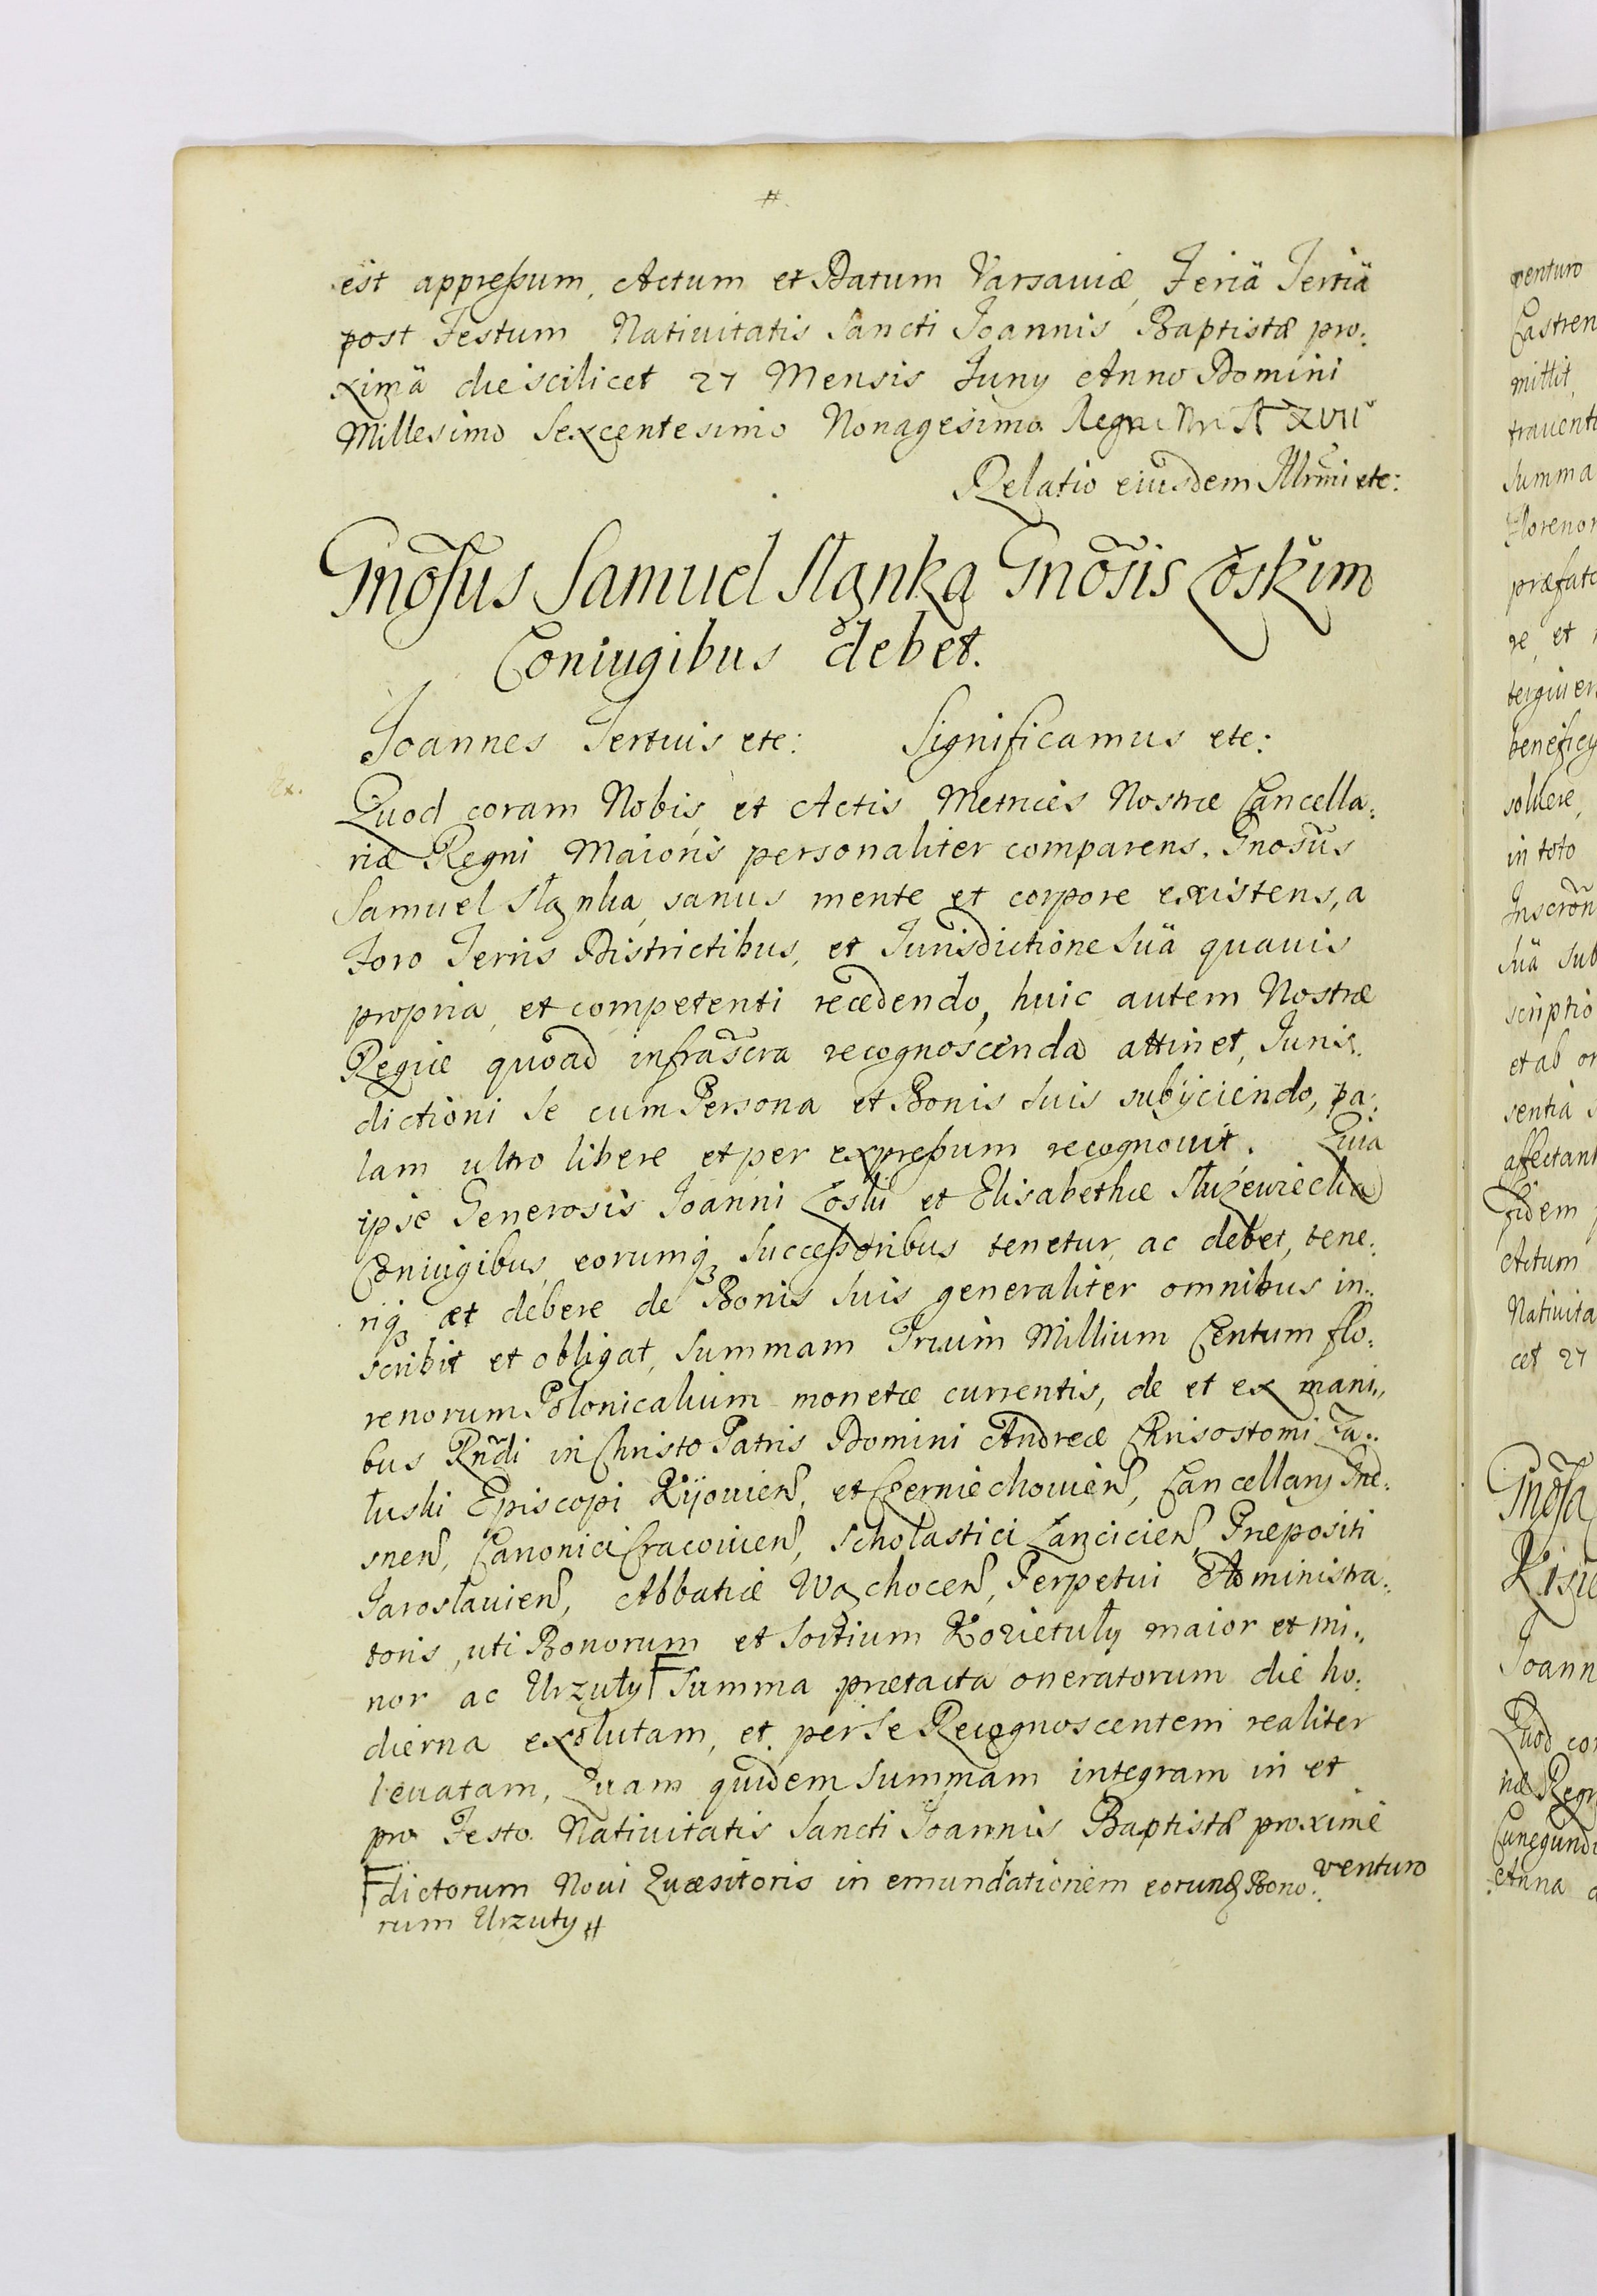 #.
est appreßum, Actum et Datum Varsauiæ, Feriâ Tertiâ
post Festum Natiuitatis Sancti Joannis Baptistæ pro:
ximâ die scilicet 27 Mensis Juny Anno Domini
Millesimo Sexcentesimo Nonagesimo. Regni Nri XVII
Relatio eiusdem Illrmi etc:
Gnosus Samuel Slanka Gnosis Łoskim
Coniugibus debet.
Joannes Tertius etc: Significamus etc:
Ex.
Quod coram Nobis, et Actis Metrices Nostræ Cancella:
riæ Regni Maioris personaliter comparens. Gnosus
Samuel Slanka, sanus mente et corpore existens, a
Foro Terris Districtibus, et Jurisdictione Suâ quauis
propria, et competenti recedendo, huic autem Nostræ
Regiæ quoad infrascra recognoscenda attinet, Juris:
dictioni se cum Persona et Bonis suis subijciendo, pa:
lam ultro libere et per expreßum recognouit. Quia
ipse Generosis Joanni Łoski et Elisabethæ Służewiecka
Coniugibus, eorumq3 Succeßoribus tenetur, ac debet, tene:
riq3 et debere de Bonis suis generaliter omnibus in:
scribit et obligat, Summam Trium Millium Centum flo:
renorum Polonicalium monetæ currentis, de et ex mani:
bus Rndi in Christo Patris Domini Andreæ Chrisostomi Za:
łuski Episcopi Kijouien, et Czerniechouien, Cancellary Gne:
snen, Canonici Cracouien, Scholastici Lancicien, Præpositi
Jarosłauien, Abbatiæ Wąchocen, Perpetui Administra:
toris, uti Bonorum et Sortium Kozietuły maior et mi:
nor ac Urzuty Γ Summa prætacta oneratorum die ho:
dierna exolutam, et per se Recognoscentem realiter
leuatam, Quam quidem Summam integram in et
pro Festo Natiuitatis Sancti Joannis Baptistæ proxime
venturo
Γ dictorum Noui Quæsitoris in emundationem eorund Bono:
rum Urzuty #
venturo
Castren
mittit,
trauent
Summa
Floreno
præfat
re, et
tergiuer
benefic
soluere,
in toto
Inscron
Suâ sub
scriptio
et ab
sentia
affectan
fidem
Actum
Natiuita
cet 27
Gnosa
Joann
Quod co
riæ Reg
Cunegund
Anna